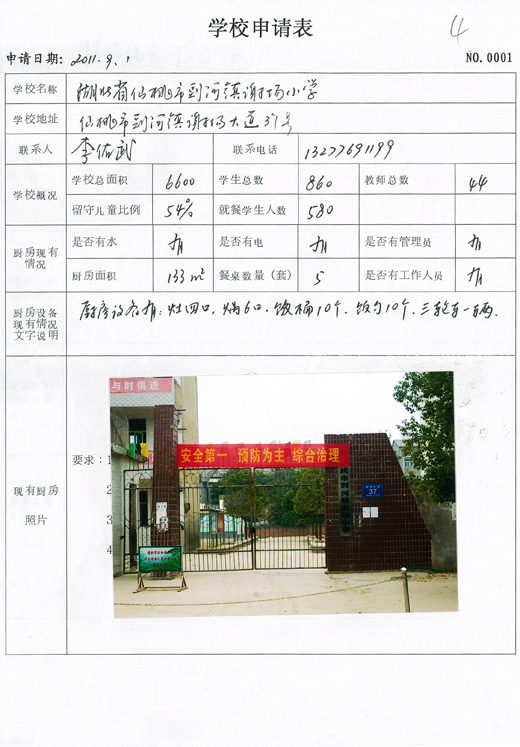 学校申请表
4
申请日期: 2011.9.1 NO.0001
学校名称 湖北省仙桃市剅河镇谢场小学
学校地址 仙桃市剅河镇谢场大道37号
联系人 李佑武 联系电话 13277691199
学校概况 学校总面积 6600 学生总数 860 教师总数 44
留守儿童比例 54% 就餐学生人数 580
厨房现有情况 是否有水 有 是否有电 有 是否有管理员 有
厨房面积 133m² 餐桌数量(套) 5 是否有工作人员 有
厨房设备
现有情况
文字说明
厨房设备有:灶四口,锅6口,饭桶10个,饭勺10个,三轮车一辆.
与时俱进
安全第一 预防为主 综合治理
37
要求:1
2
3
4
现有厨房
照片